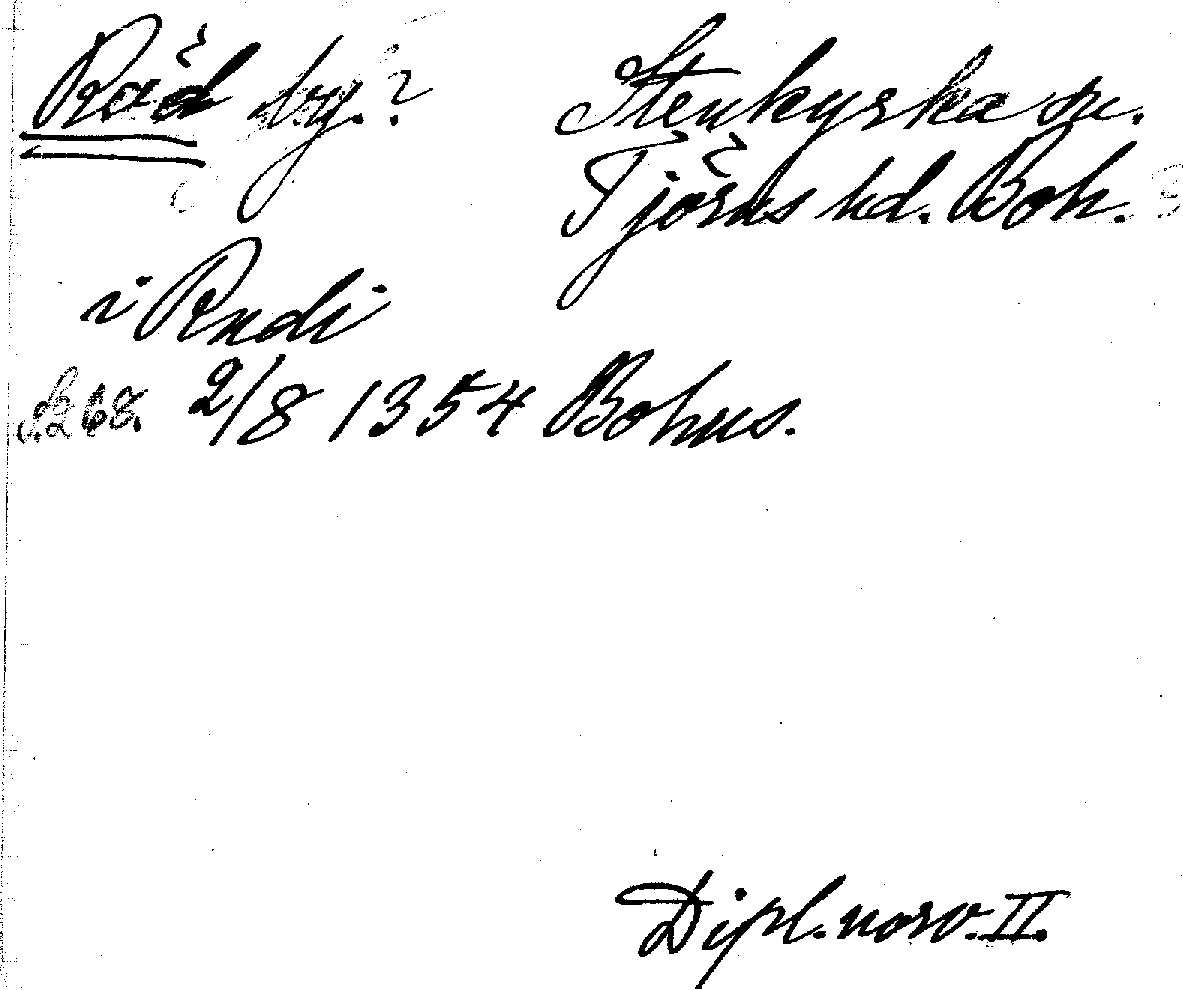 Röd by.?
Stenkyrka sn.
Tjörns hd. Boh.
i Rudi
s. 268. 2/8 1354 Bohus.
Dipl. norv. II.